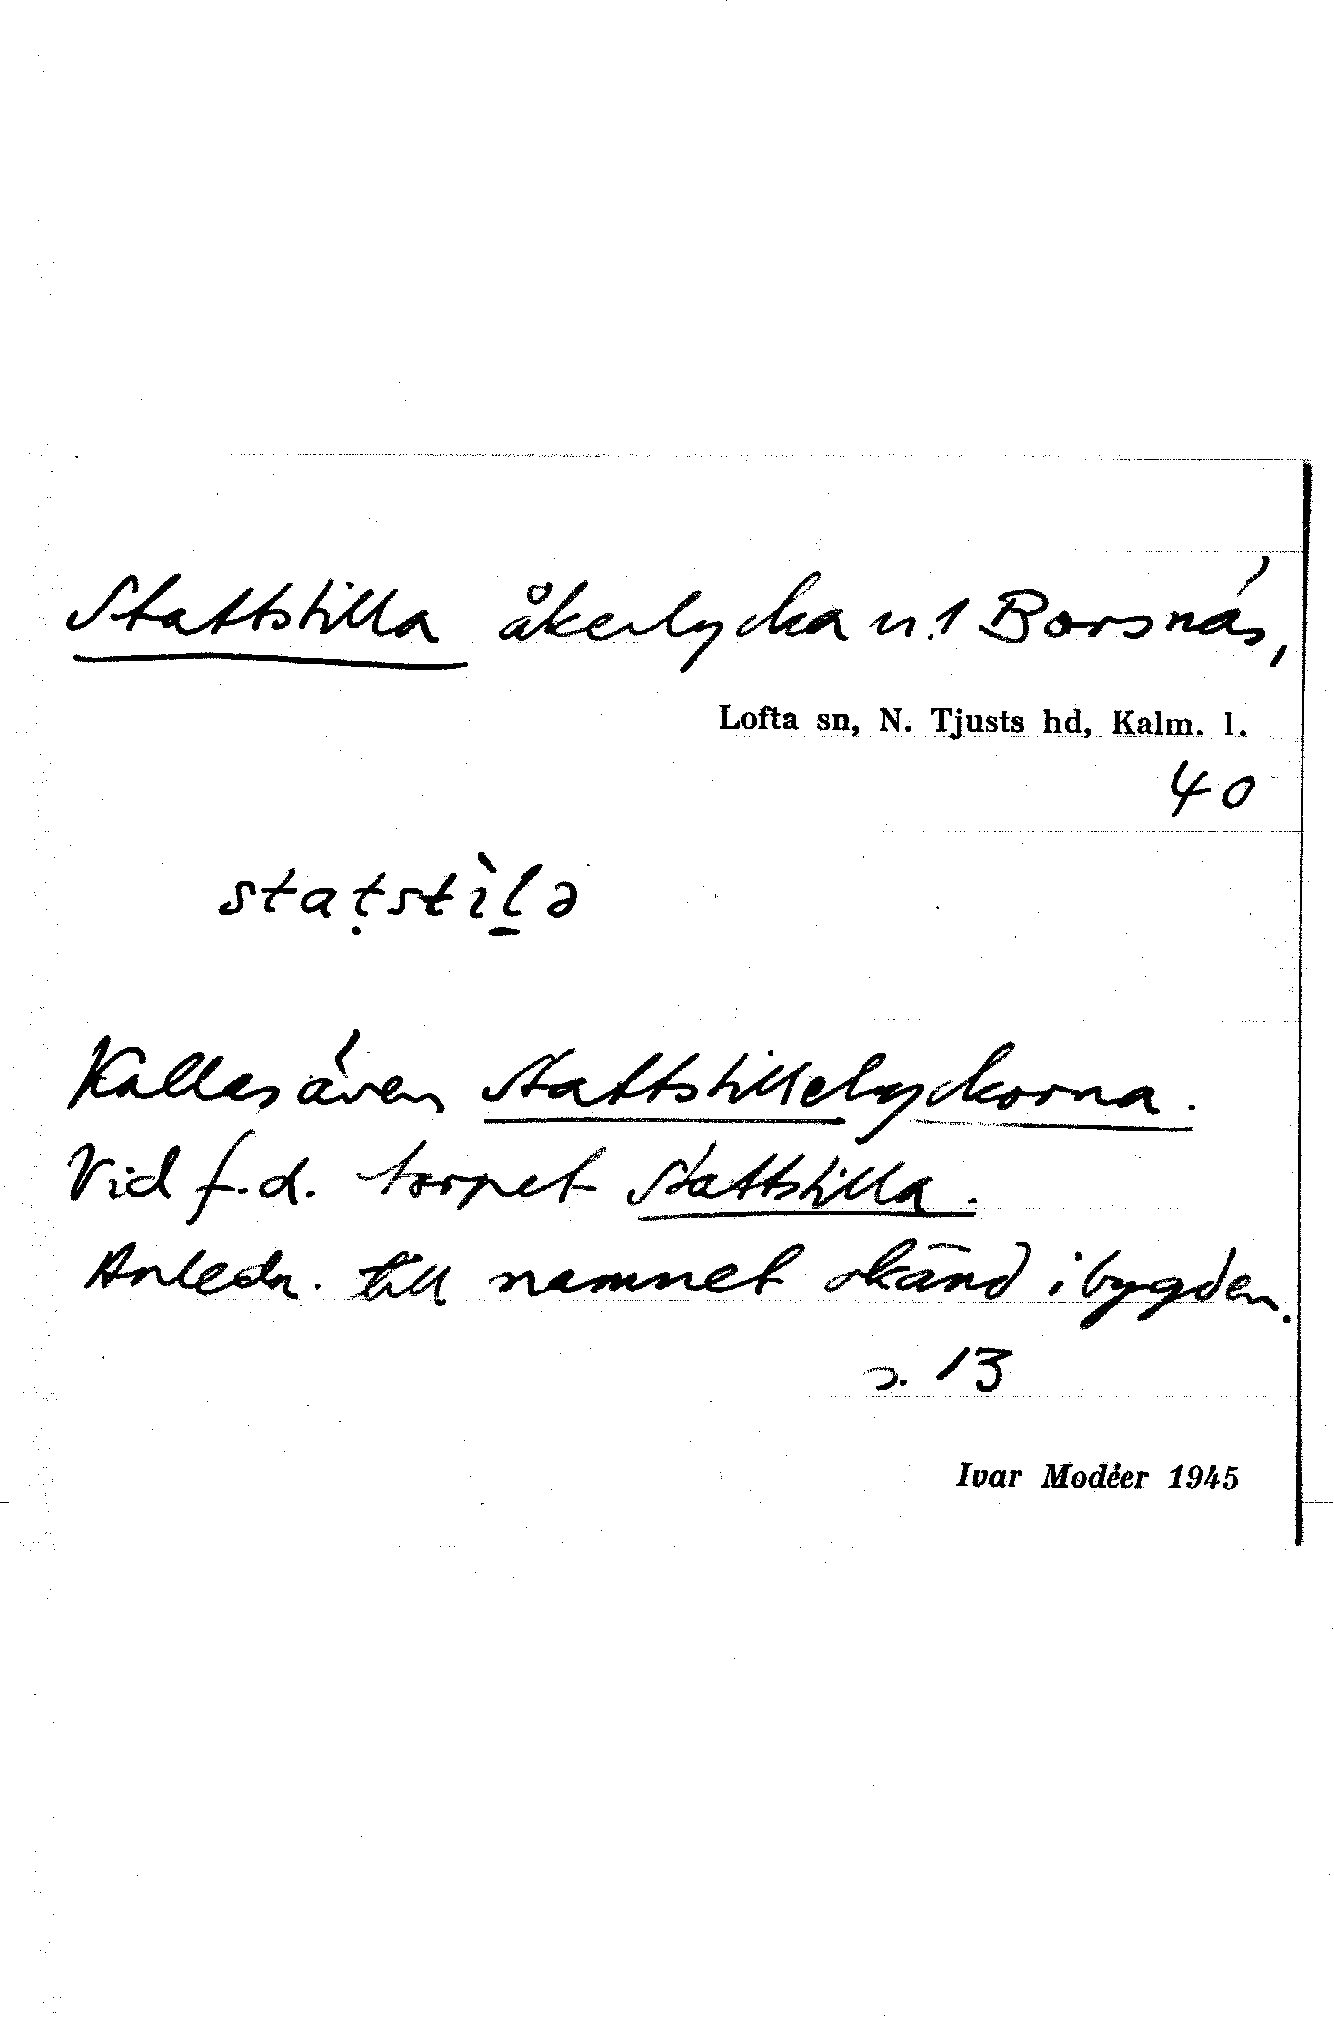 Stattstilla åkerlycka u.1 Borsnäs,
Lofta sn, N. Tjusts hd, Kalm. l.
40
staṭstìl̠ə
Kallas även Stattstillelyckorna.
Vid f.d. torpet Stattstilla.
Anledn. till namnet okänd i bygden.
s. 13
Ivar Modéer 1945